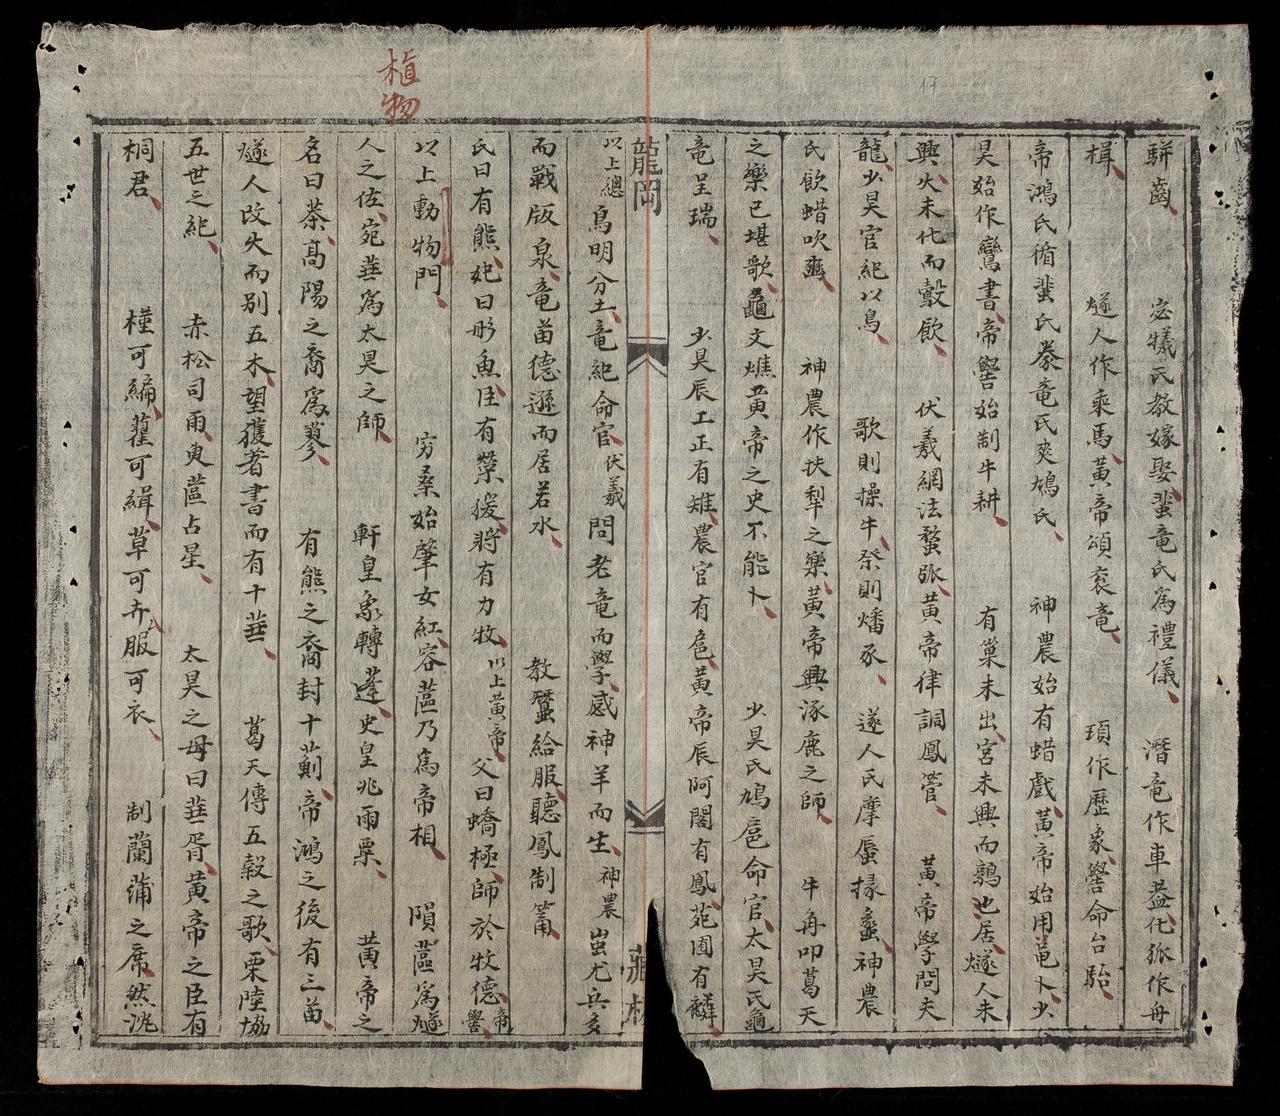 植物
駢齒 宓犧氏教嫁娶蜚竜氏為禮儀 潛竜作車蓋化狐作舟
楫 燧人作乘馬黃帝頌袞竜 頊作歷象嚳命台駘
帝鴻氏循蜚氏豢竜氏爽鳩氏 神農始有蜡戲黃帝始用竜卜少
昊始作鸞書帝嚳始制牛耕 有巢未出宮未興而鶉也居燧人未
興火未化而鷇飲 伏羲網法蝥張黃帝律調鳳管 黃帝學問夫
龍少昊官紀以鳥 歌則操牛祭則燔豕 遂人氏摩蜃掾蠡神農
氏飲蜡吹豳 神農作扶犁之樂黃帝興涿鹿之師 牛角叩葛天
之樂已堪歌龜文燋黃帝之史不能卜 少昊氏鳩扈命官太昊氏龜
竜呈瑞 少昊辰工正有雉農官有扈黃帝辰阿閣有鳳苑囿有麟
龍岡
以上總 鳥明分土竜紀命官伏羲問老竜而學感神羊而生神農 蚩尤兵多
而戰版泉竜苗德遜而居若水 教蠶給服聽鳳制筩
氏曰有熊妃曰彤魚臣有榮援將有力牧以上黃帝 父曰蟜極師於牧德帝嚳
以上動物門 窮桑始肇女紅容蓲乃為帝相 隕蓲為燧
人之佐宛華為太昊之師 軒皇象轉蓬史皇兆雨粟 黃帝之
名曰荼高陽之裔為蓼 有熊之裔封十薊帝鴻之後有三苗
燧人改火而別五木望獲著書而有十華 葛天傳五穀之歌栗陸協
五世之紀 赤松司雨臾蓲占星 太昊之母曰華胥黃帝之臣有
桐君 槿可編藋可緝草可卉服可衣 制蘭蒲之席然沈